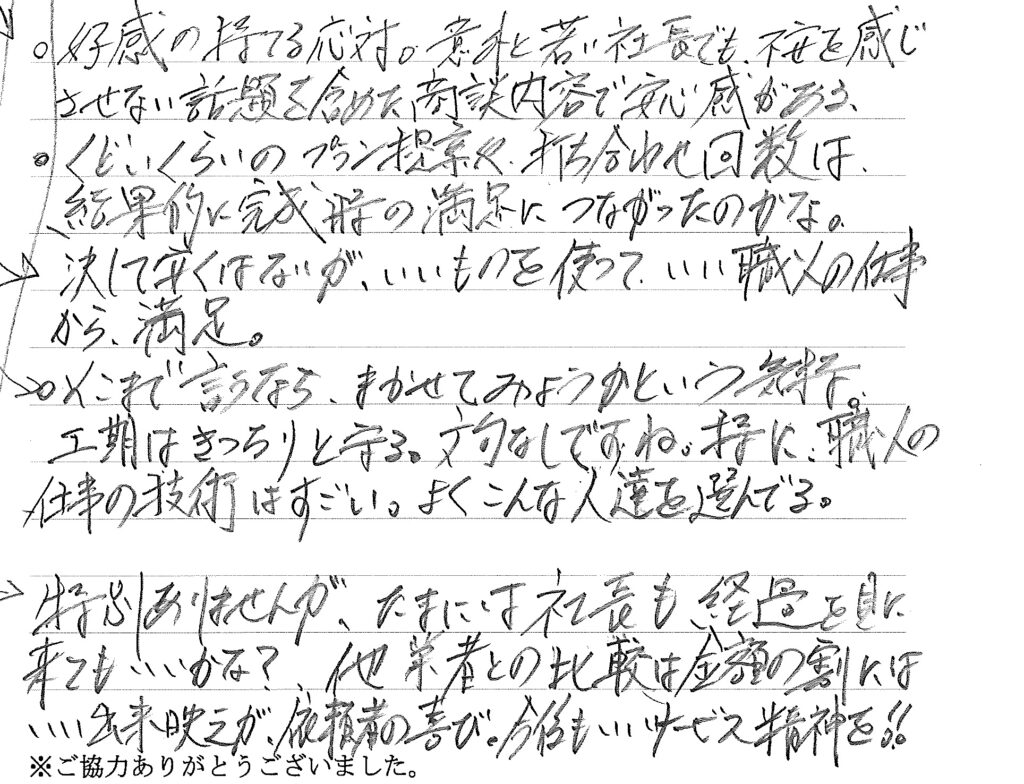 ○好感の持てる応対。意外と若い社長でも、不安を感じ
させない話題を含めた商談内容で安心感がある、
○くどいくらいのプラン提案や、打ち合わせ回数は、
結果的に完成時の満足につながったのかな。
決して安くはないが、いいものを使って、いい職人の仕事
から、満足。
○そこまで言うなら、まかせてみようかという気持。
工期はきっちりと守る。文句なしですね。特に、職人の
仕事の技術はすごい。よくこんな人達を選んでる。
特別ありませんが、たまには社長も、経過を見に
来てもいいかな？、他業者との比較は金額の割には
いい出来映えが、依頼者の喜び。今後もいいサービス精神を!!
※ご協力ありがとうございました。